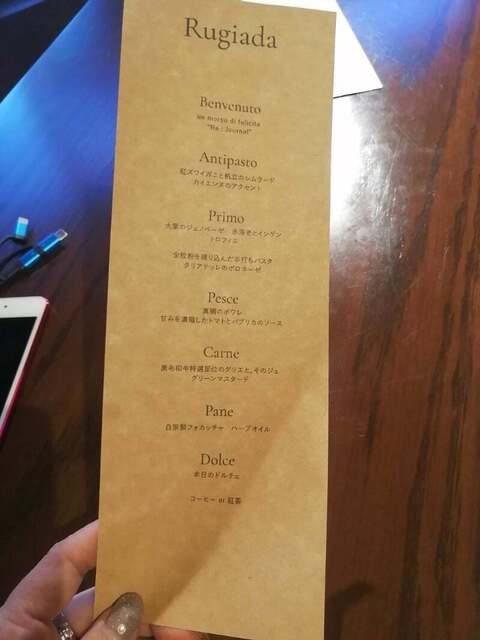 Rugiada
Benvenuto
un morso di felicità
"Re : Journal"
Antipasto
紅ズワイガニと帆立のレムラード
カイエンヌのアクセント
Primo
大葉のジェノベーゼ 赤海老とインゲン
トロフィエ
全粒粉を練り込んだ手打ちパスタ
タリアテッレのボロネーゼ
Pesce
真鯛のポワレ
甘みを凝縮したトマトとパプリカのソース
Carne
黒毛和牛特選部位のグリエと、そのジュ
グリーンマスタード
Pane
自家製フォカッチャ ハーブオイル
Dolce
本日のドルチェ
コーヒー or 紅茶